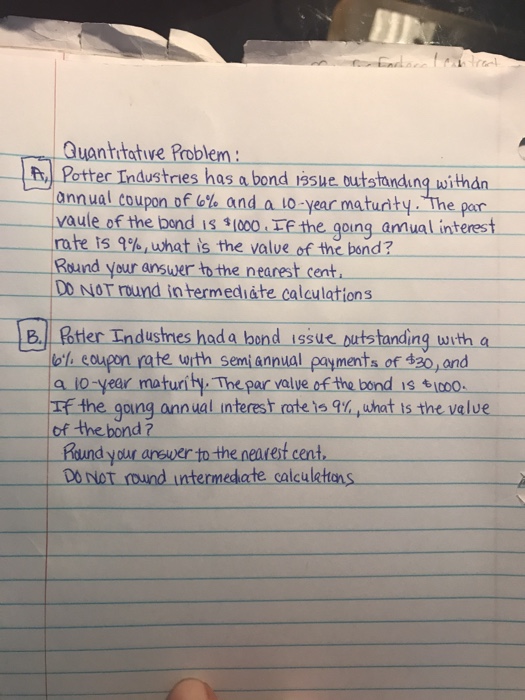 Quantitative Problem:
A, Potter Industries has a bond issue outstanding withan
annual coupon of 6% and a 10-year maturity. The par
vaule of the bond is $1000. If the going annual interest
rate is 9%, what is the value of the bond?
Round your answer to the nearest cent.
DO NOT round intermediate calculations
B. Potter Industries had a bond issue outstanding with a
6% coupon rate with semiannual payments of $30, and
a 10-year maturity. The par value of the bond is $1000.
If the going annual interest rate is 9%, what is the value
of the bond?
Round your answer to the nearest cent.
DO NOT round intermediate calculations